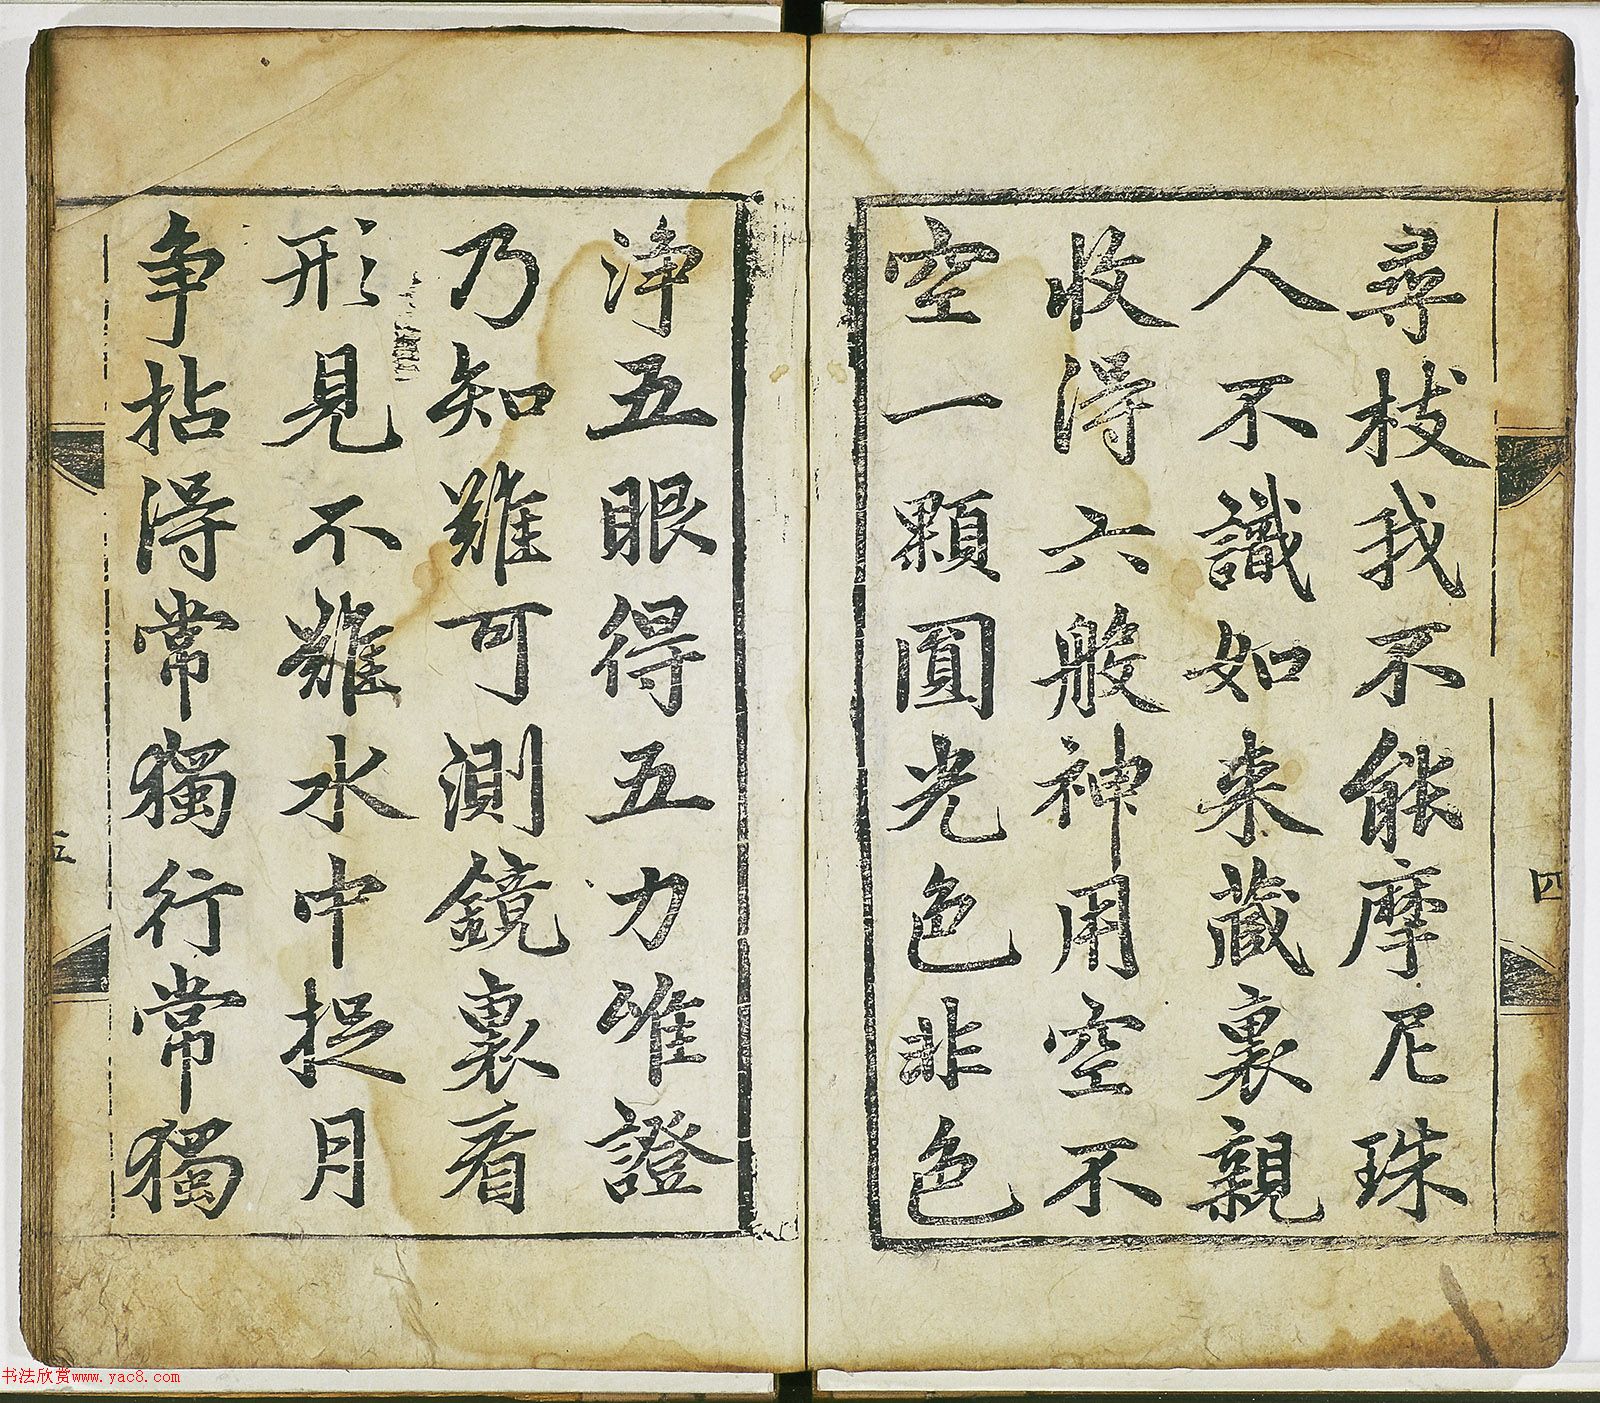 尋枝我不能摩尼珠
人不識如来藏裏親
收得六般神用空不
空一顆圓光色非色
四
浄五眼得五力唯證
乃知難可測鏡裏看
形見不難水中捉月
争拈得常獨行常獨
书法欣赏www.yac8.com